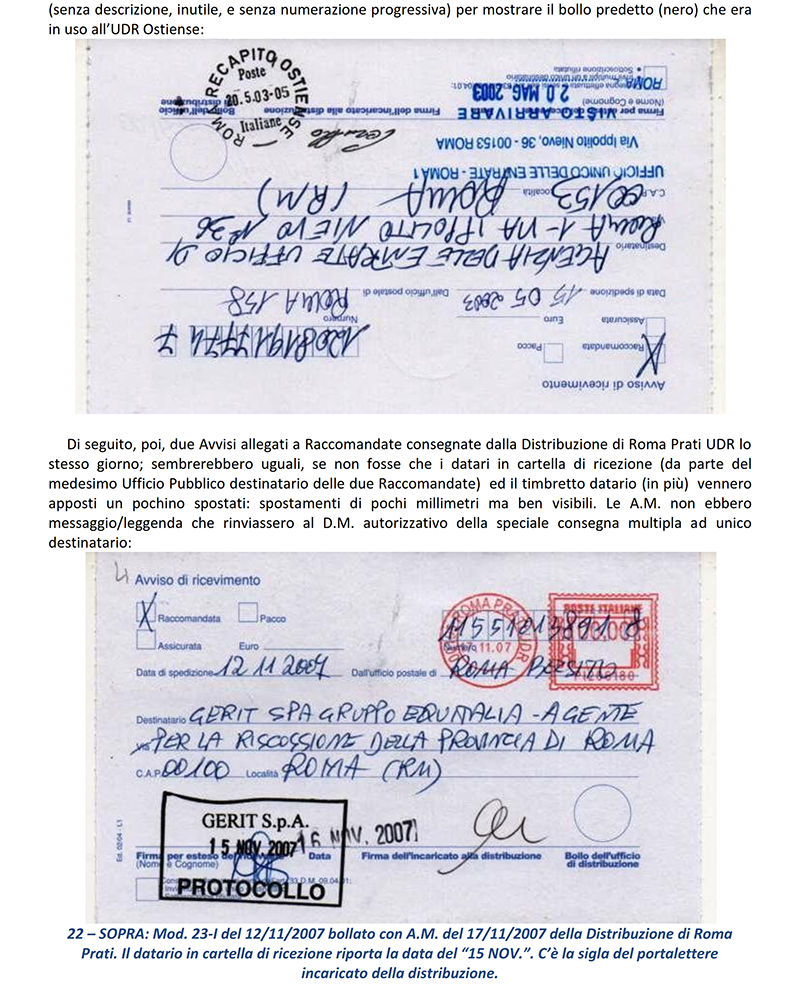 (senza descrizione, inutile, e senza numerazione progressiva) per mostrare il bollo predetto (nero) che era
in uso all'UDR Ostiense:
ROMA RECAPITO OSTIENSE
Poste
20.5.03-05
Italiane
Sottoscrizione rifiutata
ROMA
20 MAG. 2003
(Nome e Cognome)
Bollo dell'ufficio di distribuzione
Firma dell'incaricato alla distribuzione
Firma per esteso
VISTO ARRIVARE
Via Ippolito Nievo, 36 - 00153 ROMA
UFFICIO UNICO DELLE ENTRATE - ROMA 1
C.A.P. 00153 Località ROMA (RM)
ROMA 1 - VIA IPPOLITO NIEVO N° 36
Destinatario AGENZIA DELLE ENTRATE UFFICIO DI
Data di spedizione 15 05 2003 Dall'ufficio postale di ROMA 158
Numero
12081917774 7
Assicurata Euro
X Raccomandata Pacco
Avviso di ricevimento
Di seguito, poi, due Avvisi allegati a Raccomandate consegnate dalla Distribuzione di Roma Prati UDR lo
stesso giorno; sembrerebbero uguali, se non fosse che i datari in cartella di ricezione (da parte del
medesimo Ufficio Pubblico destinatario delle due Raccomandate) ed il timbretto datario (in più) vennero
apposti un pochino spostati: spostamenti di pochi millimetri ma ben visibili. Le A.M. non ebbero
messaggio/leggenda che rinviassero al D.M. autorizzativo della speciale consegna multipla ad unico
destinatario:
Avviso di ricevimento
X Raccomandata Pacco
Assicurata Euro
ROMA PRATI UDR
17.11.07
POSTE ITALIANE
11551013891 8
Numero
Data di spedizione 12 11 2007 Dall'ufficio postale di ROMA
Destinatario GERIT SPA GRUPPO EQUITALIA - AGENTE
Via PER LA RISCOSSIONE DELLA PROVINCIA DI ROMA
C.A.P. 00100 Località ROMA (RM)
Ed. 02/04 - L1
GERIT S.p.A.
15 NOV. 2007
16 NOV. 2007
Firma per esteso Data Firma dell'incaricato alla distribuzione Bollo dell'ufficio
(Nome e Cognome) di distribuzione
PROTOCOLLO
22 – SOPRA: Mod. 23-I del 12/11/2007 bollato con A.M. del 17/11/2007 della Distribuzione di Roma
Prati. Il datario in cartella di ricezione riporta la data del "15 NOV.". C'è la sigla del portalettere
incaricato della distribuzione.